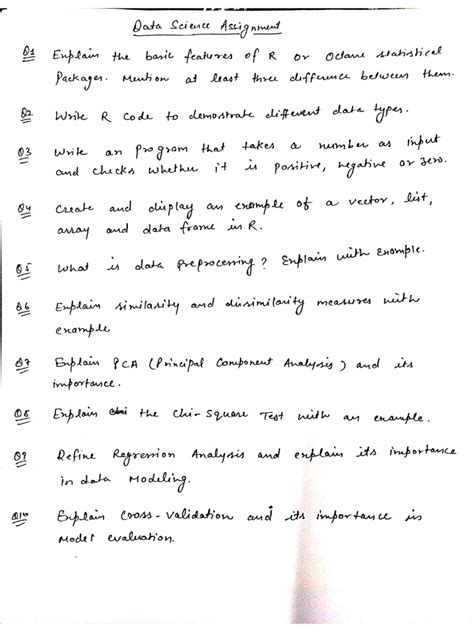 Data Science Assignment
Q1 Explain the basic features of R or Octane statistical
Packages. Mention at least three difference between them.
Q2 Write R Code to demostrate different data types.
Q3 Write an Program that takes a number as input
and checks whether it is positive, negative or zero.
Q4 Create and display an example of a vector, list,
array and data frame in R.
Q5 What is data preprocessing? Explain with Example.
Q6 Explain similarity and dissimilarity measures with
example
Q7 Explain PCA (Principal Component Analysis) and its
importance.
Q8 Explain the Chi-Square Test with an example.
Q9 Define Regression Analysis and explain its importance
in data Modeling.
Q10 Explain Cross-Validation and its importance in
Model evaluation.